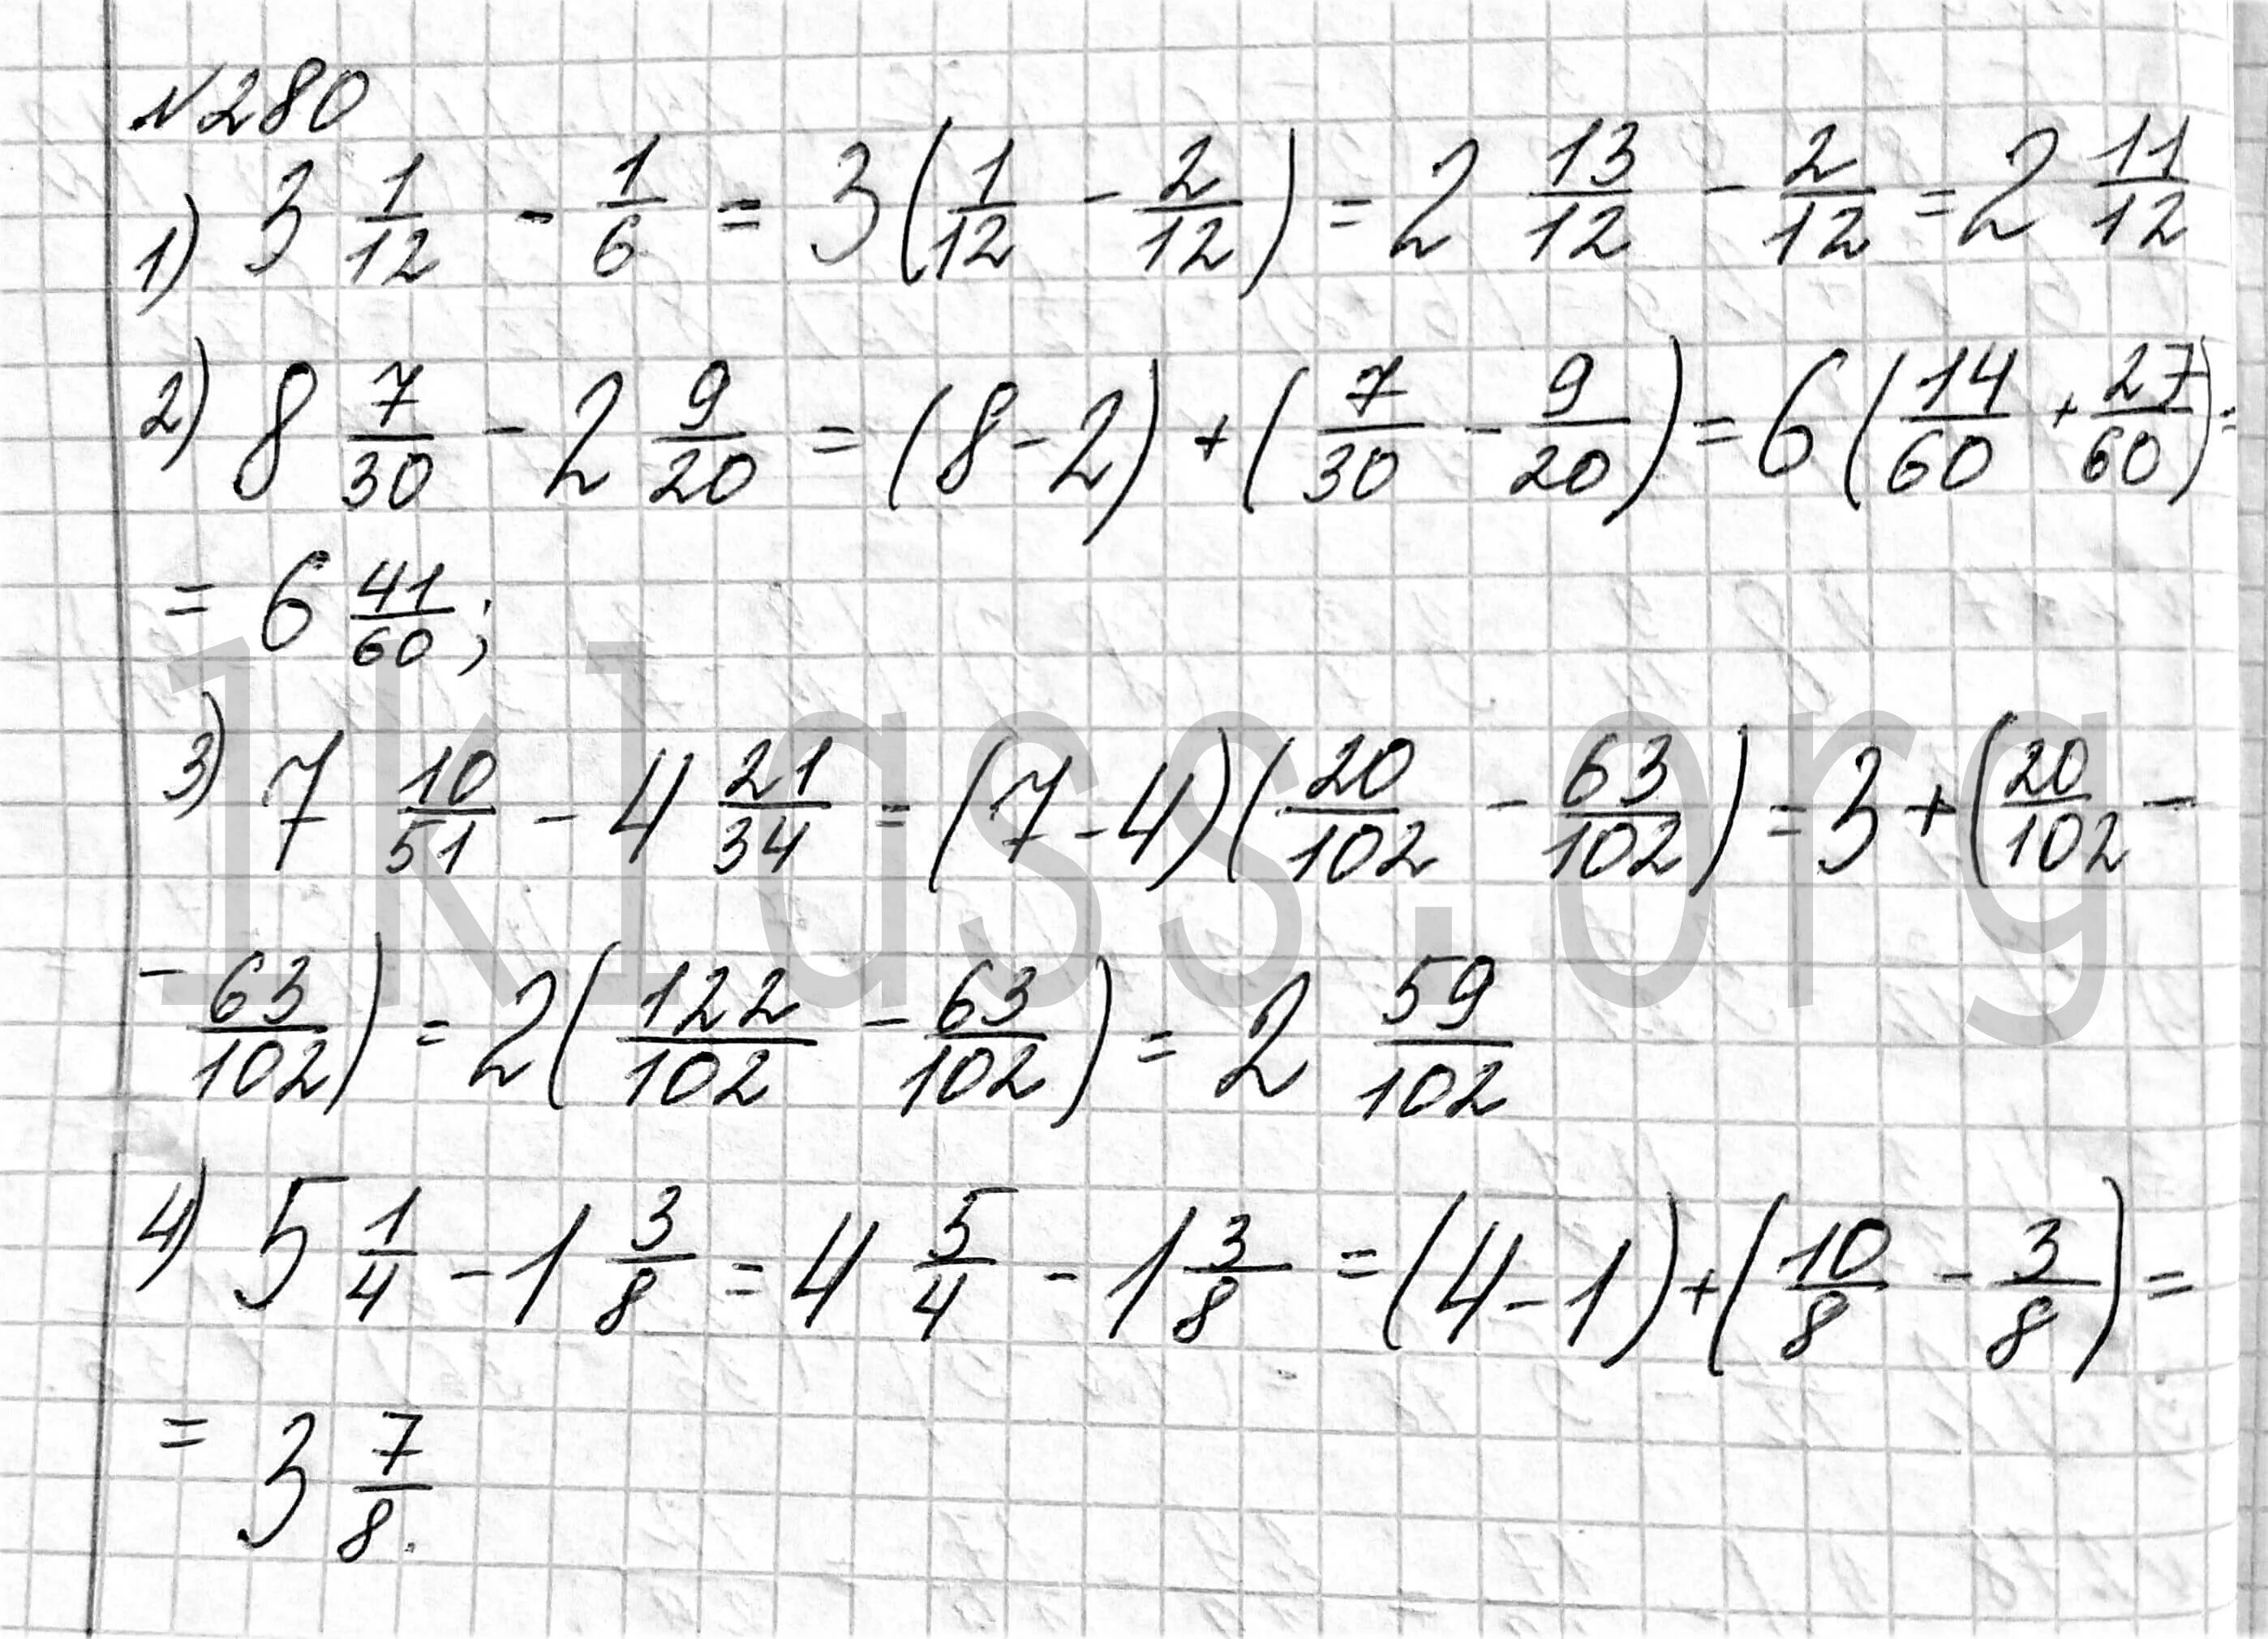 №280
1) 3 1/12 - 1/6 = 3(1/12 - 2/12) = 2 13/12 - 2/12 = 2 11/12
2) 8 7/30 - 2 9/20 = (8-2) + (7/30 - 9/20) = 6(14/60 + 27/60) =
= 6 41/60;
3) 7 10/51 - 4 21/34 = (7-4)(20/102 - 63/102) = 3 + (20/102 -
- 63/102) = 2(122/102 - 63/102) = 2 59/102
4) 5 1/4 - 1 3/8 = 4 5/4 - 1 3/8 = (4-1) + (10/8 - 3/8) =
= 3 7/8.
1klass.org